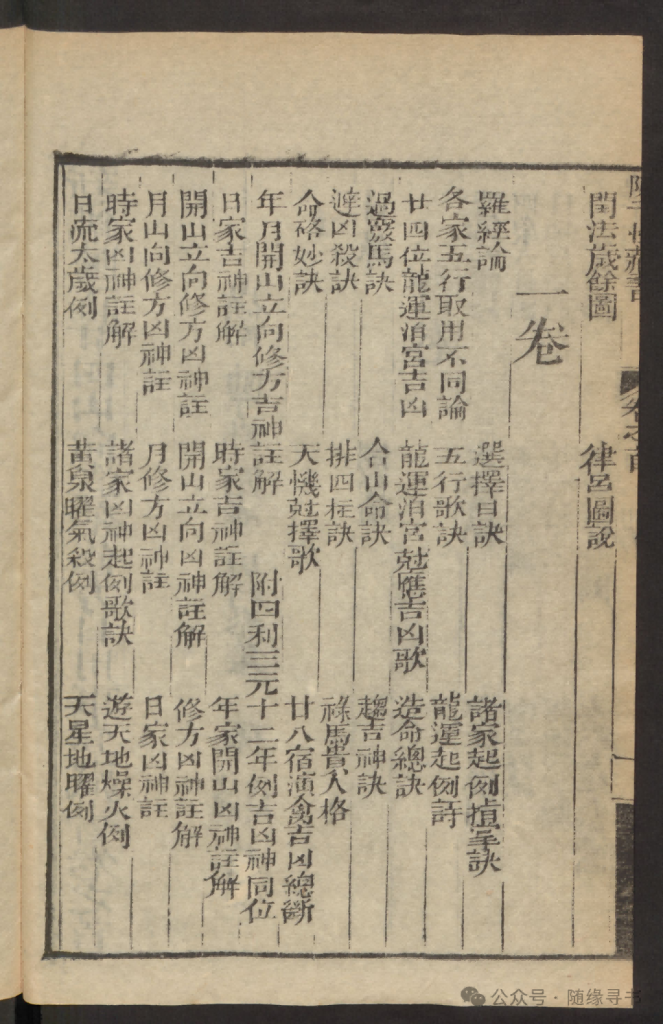 閏法歲餘圖 律呂圖說
一卷
羅經論 選擇日訣 諸家起例掌訣
各家五行取用不同論 五行歌訣 龍運起例
廿四位龍運泊宮吉凶 龍運泊宮尅應吉凶歌 造命總訣
過竅馬訣 合山命訣 趨吉神訣
避凶殺訣 排四柱訣 祿馬貴人格
命硌妙訣 天機尅擇歌 廿八宿演禽吉凶總斷
年月開山立向修方吉神註解 附四利三元十二年例吉凶神同位
日家吉神註解 時家吉神註解 年家開山凶神註解
開山立向修方凶神註 開山立向凶神註解 修方凶神註解
月山向修方凶神註 月修方凶神註 日家凶神註
時家凶神註解 諸家凶神起例歌訣 遊天地燥火例
日流太歲例 黃泉曜氣殺例 天星地曜例
公众号·随缘寻书